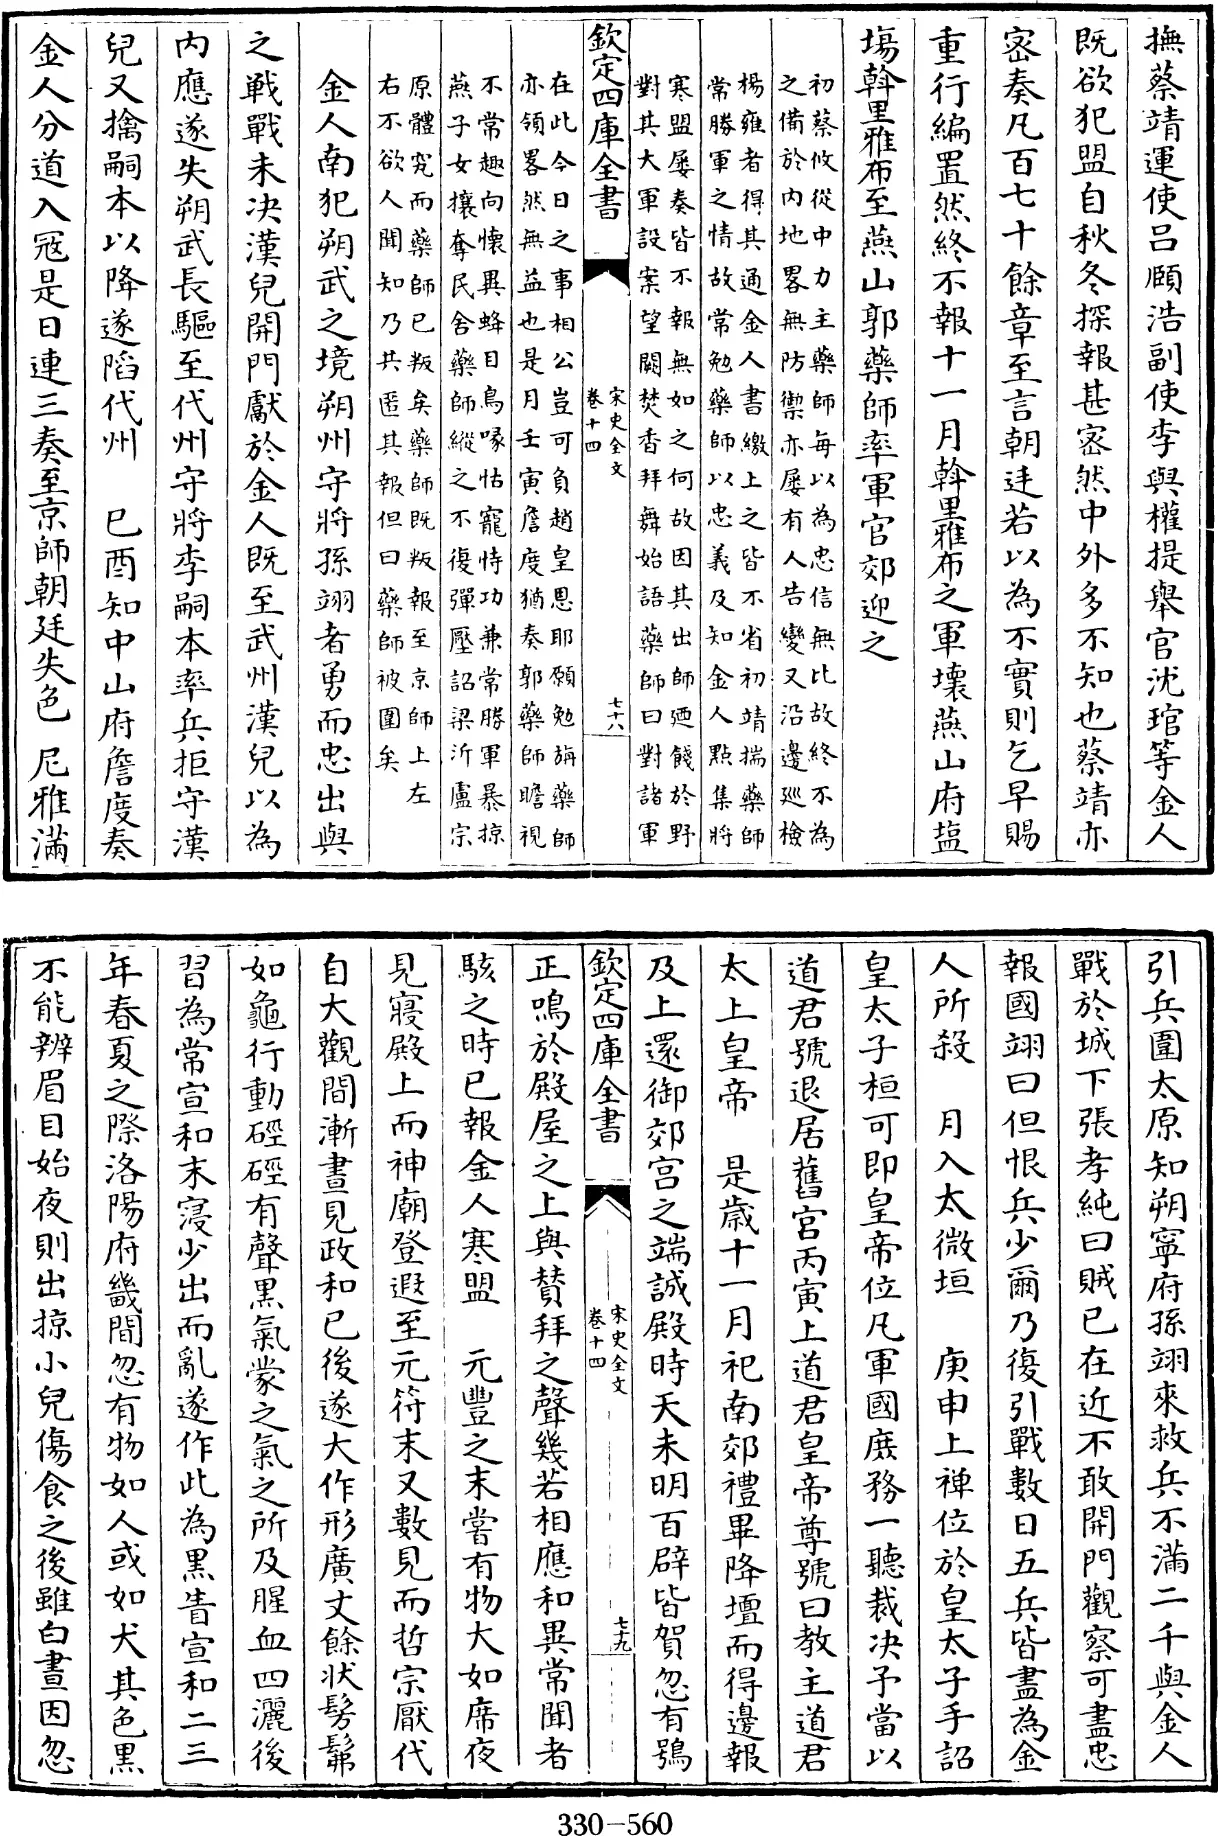 撫蔡靖運使吕頤浩副使李與權提舉官沈琯等金人
既欲犯盟自秋冬探報甚宻然中外多不知也蔡靖亦
宻奏凡百七十餘章至言朝廷若以為不實則乞早賜
重行編置然終不報十一月斡里雅布之軍壞燕山府鹽
塲斡里雅布至燕山郭藥師率軍官郊迎之
初蔡攸從中力主藥師每以為忠信無比故終不為
之備於内地畧無防禦亦屢有人告變又沿邊廵檢
楊雍者得其通金人書繳上之皆不省初靖揣藥師
常勝軍之情故常勉藥師以忠義及知金人㸃集將
寒盟屢奏皆不報無如之何故因其出師廼餞於野
對其大軍設案望闕焚香拜舞始語藥師曰對諸軍
欽定四庫全書
宋史全文
卷十四
七十八
在此今日之事相公豈可負趙皇恩耶願勉旃藥師
亦領畧然無益也是月壬寅詹度猶奏郭藥師瞻視
不常趣向懐異蜂目鳥喙怙寵恃功兼常勝軍暴掠
燕子女攘奪民舍藥師縱之不復彈壓詔梁沂盧宗
原體究而藥師已叛矣藥師既叛報至京師上左
右不欲人聞知乃共匿其報但曰藥師被圍矣
金人南犯朔武之境朔州守將孫翊者勇而忠出與
之戰戰未决漢兒開門獻於金人既至武州漢兒以為
内應遂失朔武長驅至代州守將李嗣本率兵拒守漢
兒又擒嗣本以降遂䧟代州　已酉知中山府詹度奏
金人分道入冦是日連三奏至京師朝廷失色　尼雅滿
引兵圍太原知朔寧府孫翊來救兵不滿二千與金人
戰於城下張孝純曰賊已在近不敢開門觀察可盡忠
報國翊曰但恨兵少爾乃復引戰數日五兵皆盡為金
人所殺　月入太微垣　庚申上禅位於皇太子手詔
皇太子桓可即皇帝位凡軍國庶務一聽裁决予當以
道君號退居舊宮丙寅上道君皇帝尊號曰教主道君
太上皇帝　是歳十一月祀南郊禮畢降壇而得邊報
及上還御郊宮之端誠殿時天未明百辟皆賀忽有鴞
欽定四庫全書
宋史全文
卷十四
七十九
正鳴於殿屋之上與賛拜之聲幾若相應和異常聞者
駭之時已報金人寒盟　元豐之末甞有物大如席夜
見寢殿上而神廟登遐至元符末又數見而哲宗厭代
自大觀間漸晝見政和已後遂大作形廣丈餘狀髣髴
如龜行動硜硜有聲黒氣蒙之氣之所及腥血四灑後
習為常宣和末寖少出而亂遂作此為黒眚宣和二三
年春夏之際洛陽府畿間忽有物如人或如犬其色黒
不能辨眉目始夜則出掠小兒傷食之後雖白晝因忽
330-560